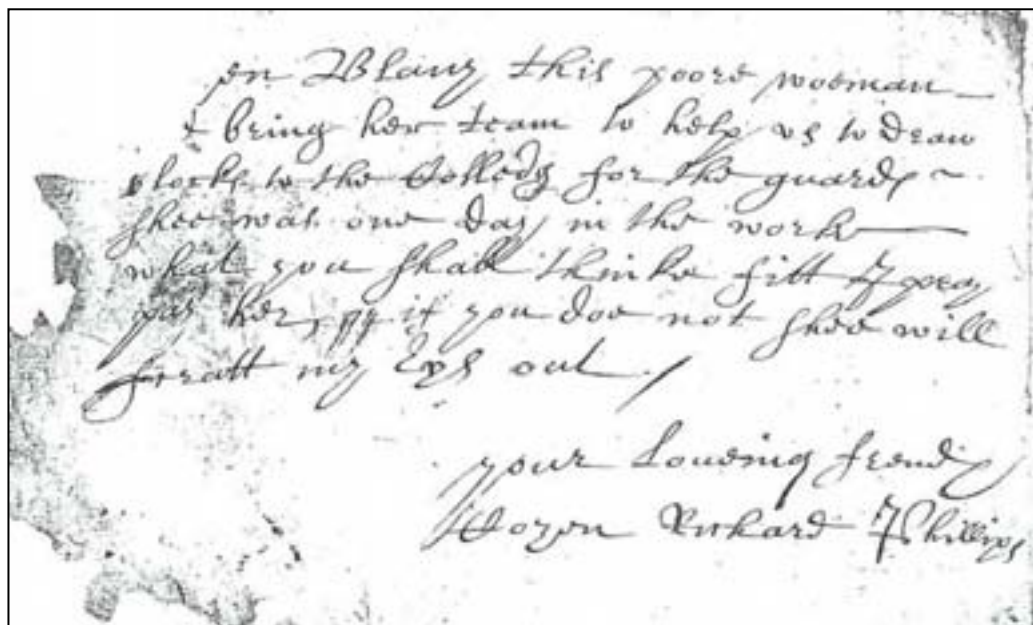 this poore woeman
bring her team to help us to draw
to the Colledg for the guard
shee was one day in the worke
what you shall thinke fitt I pray
pay her, if you doe not shee will
scratt my Eys out ./
your Loueing frend
Richard Phillips